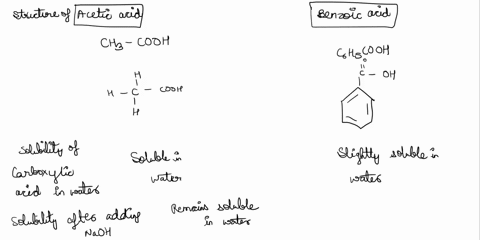 Structure of Acetic acid
Benzoic acid
CH3 - COOH
C6H5COOH
H
H - C - COOH
H
O
C - OH
Solubility of
Carboxylic
acid in water
Soluble in
water
Slightly soluble in
water
Solubility after adding
NaOH
Remains soluble
in water